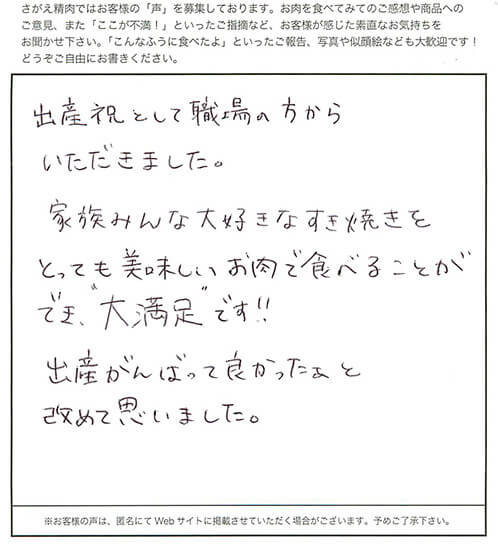 さがえ精肉ではお客様の「声」を募集しております。お肉を食べてみてのご感想や商品への
ご意見、また「ここが不満！」といったご指摘など、お客様が感じた素直なお気持ちを
お聞かせ下さい。「こんなふうに食べたよ」といったご報告、写真や似顔絵なども大歓迎です！
どうぞご自由にお書きください。
出産祝として職場の方から
いただきました。
家族みんな大好きなすき焼きを
とっても美味しいお肉で食べることが
でき、"大満足"です!!
出産がんばって良かったぁと
改めて思いました。
※お客様の声は、匿名にてWebサイトに掲載させていただく場合がございます。予めご了承下さい。